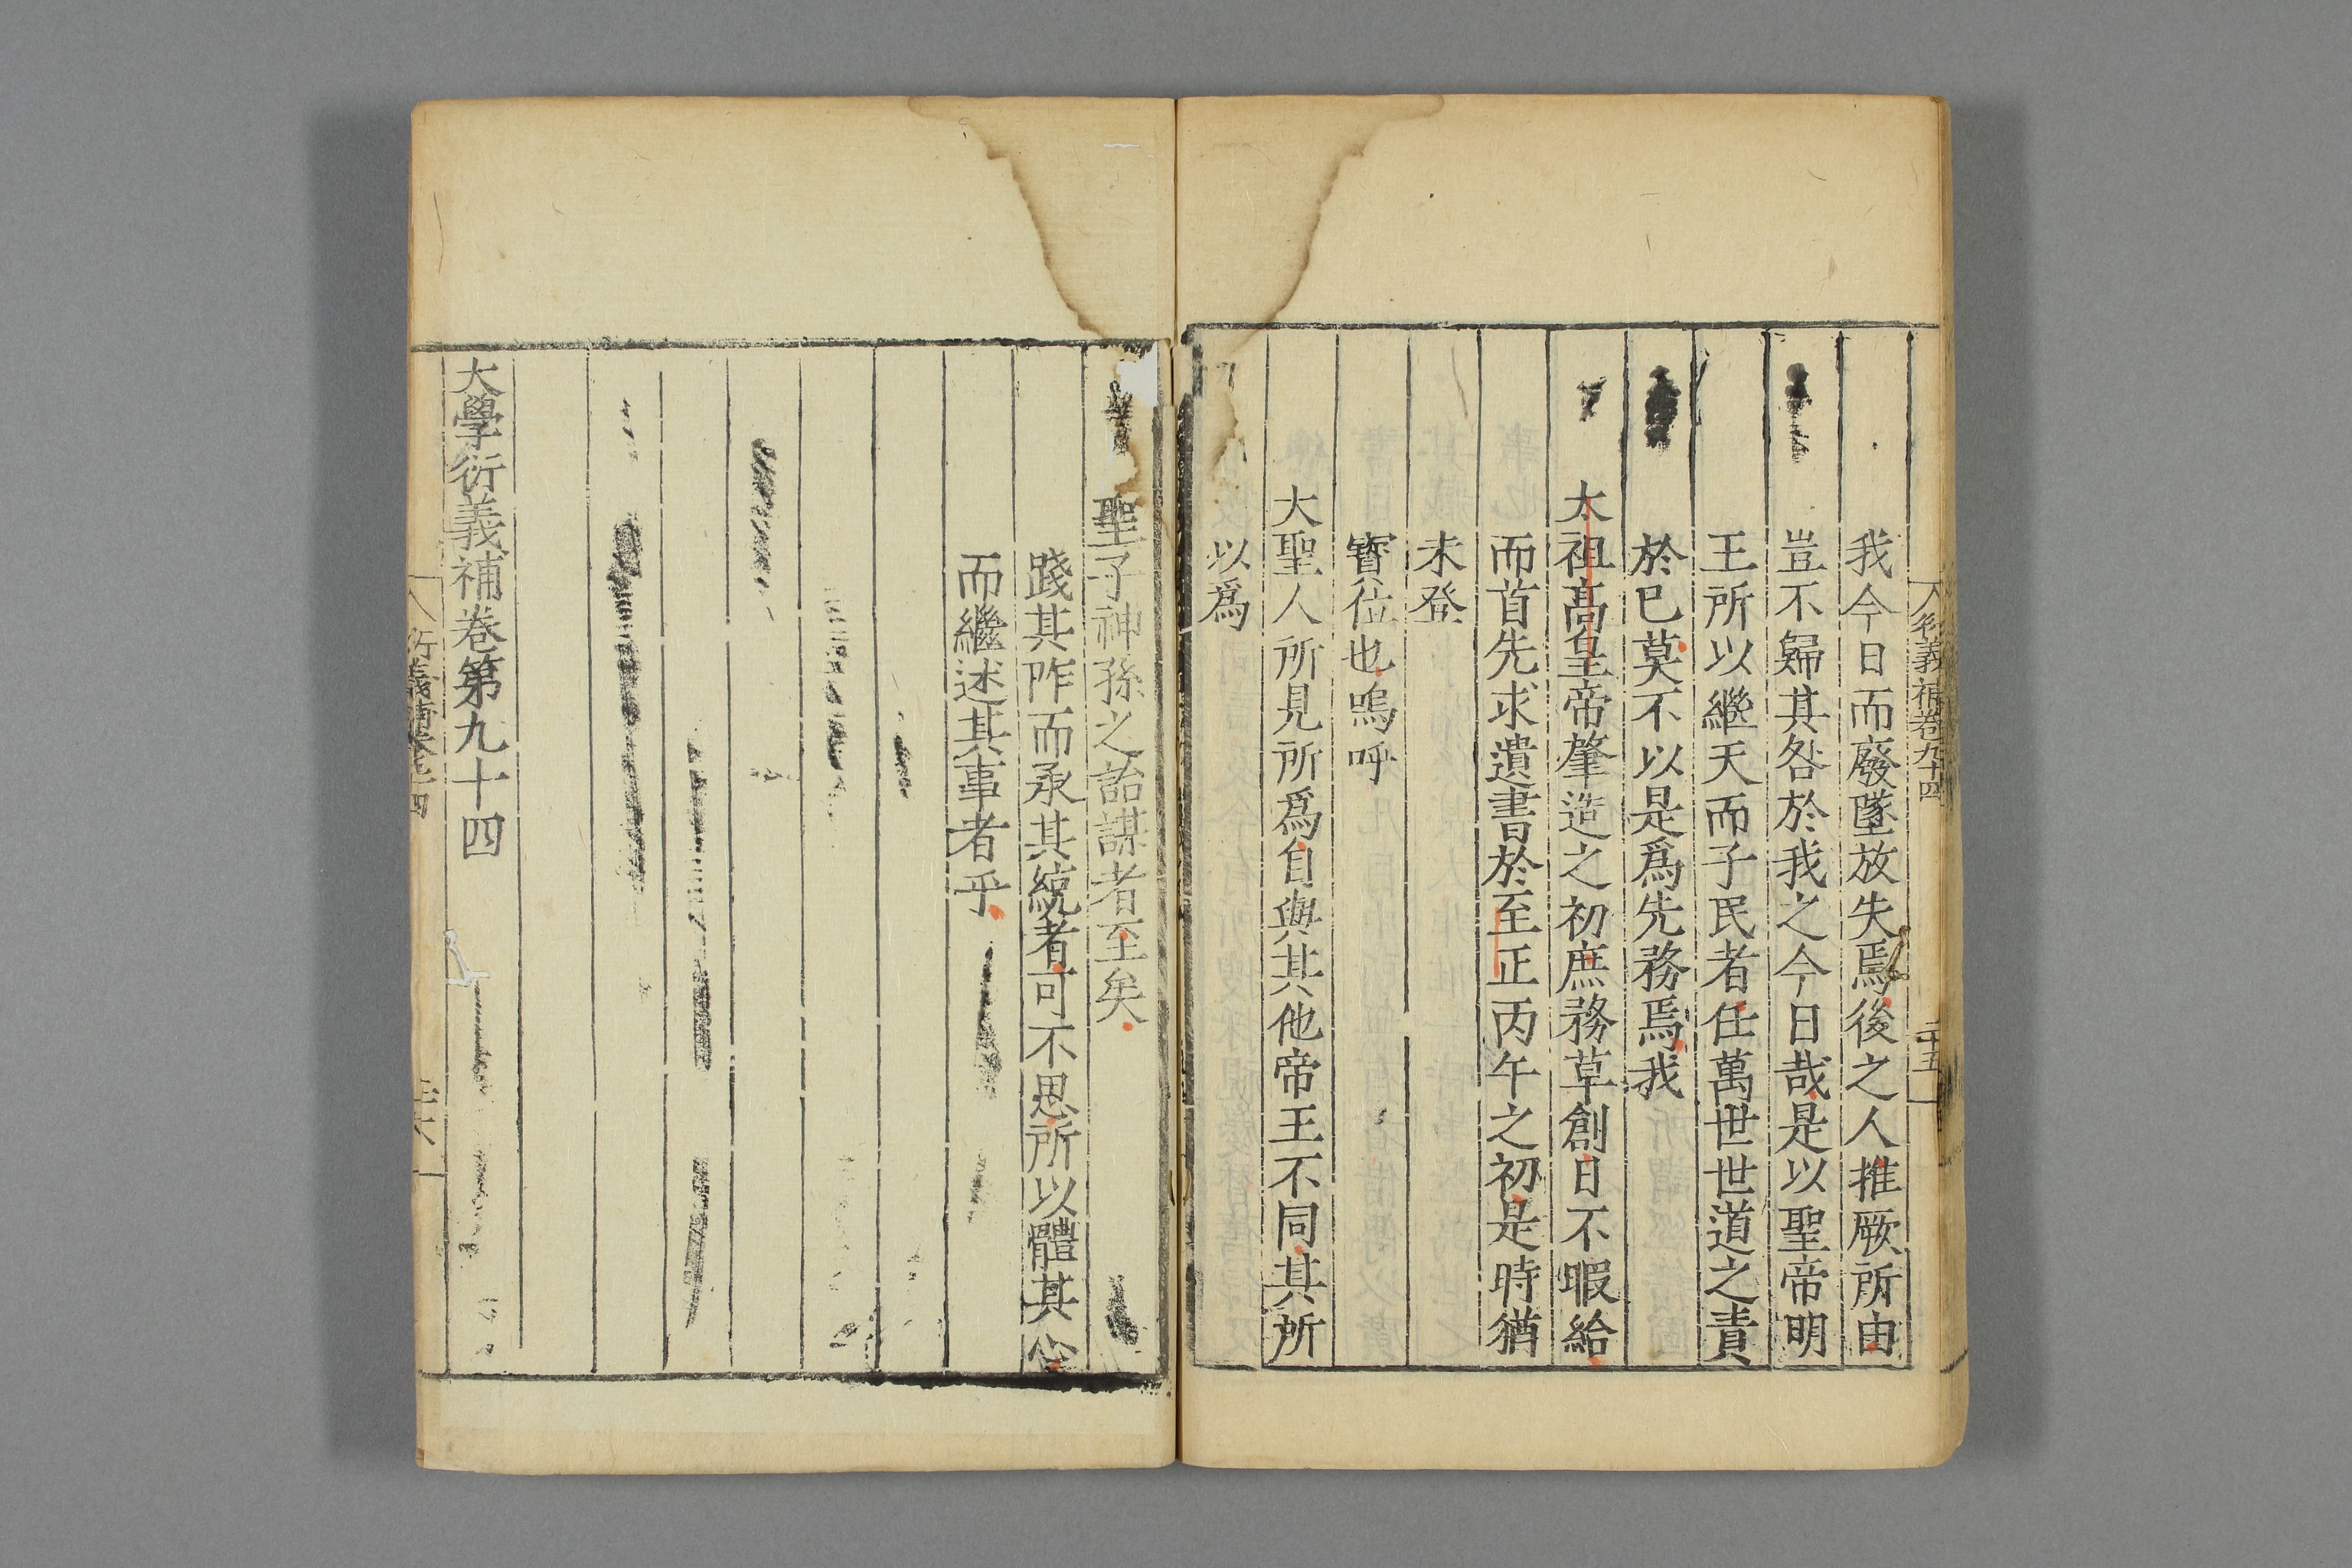 衍義補卷九十四
二十五
我今日而廢墜放失焉後之人推厥所由
豈不歸其咎於我之今日哉是以聖帝明
王所以繼天而子民者任萬世世道之責
於已莫不以是爲先務焉我
太祖高皇帝肇造之初庶務草創日不暇給
而首先求遺書於至正丙午之初是時猶
未登
寳位也嗚呼
大聖人所見所爲自與其他帝王不同其所
以爲
聖子神孫之詒謀者至矣
踐其阼而承其統者可不思所以體其心
而繼述其事者乎
大學衍義補卷第九十四